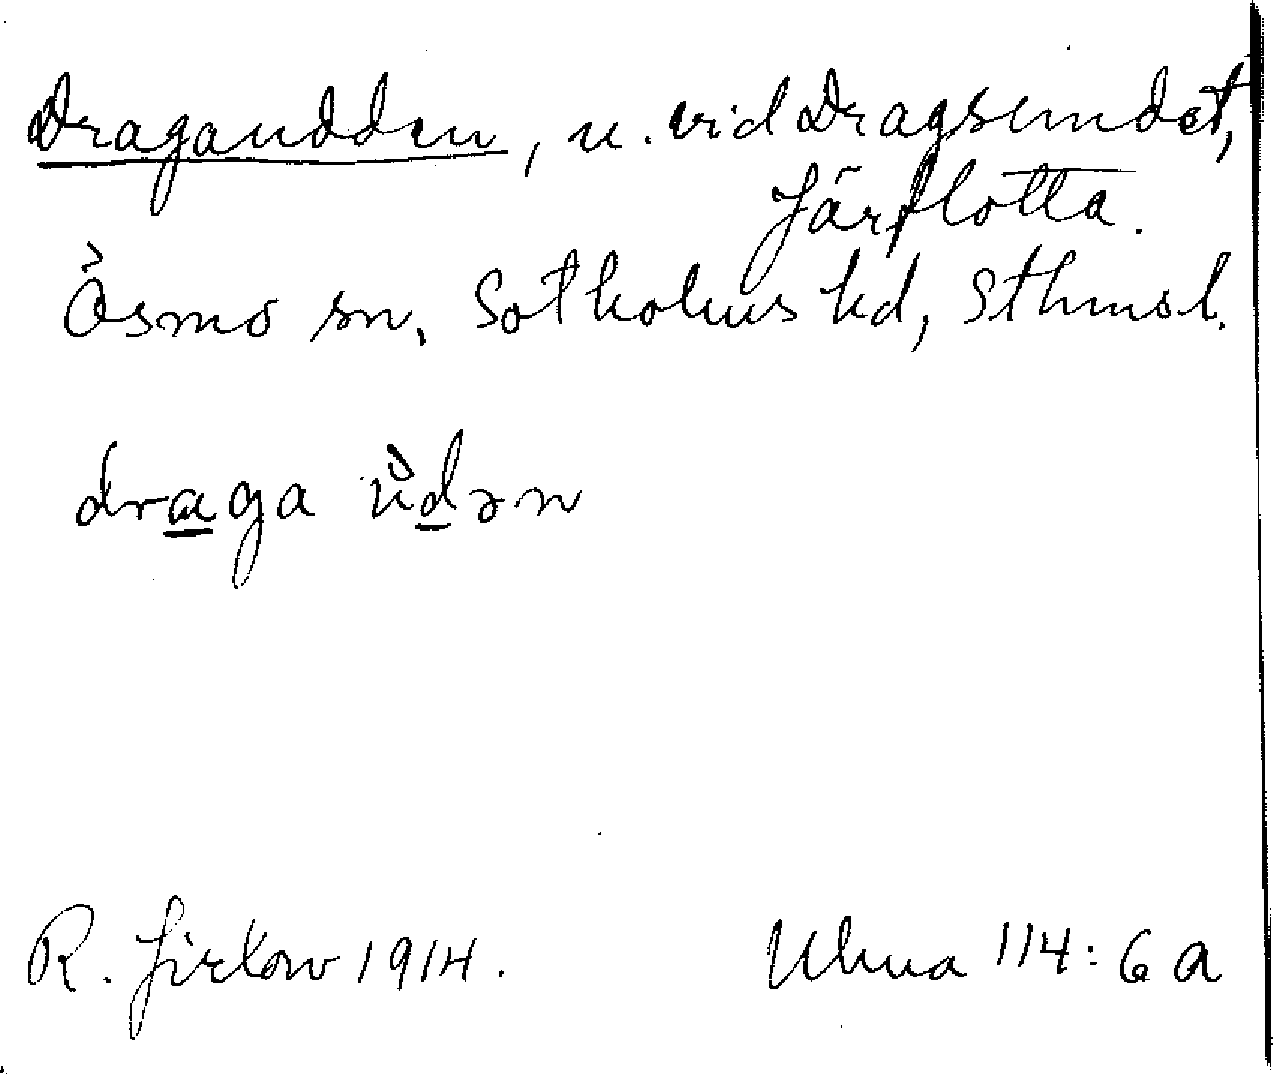 Dragaudden, u. vid Dragsundet,
Järflotta.
Ösmo sn, Sotholms hd, Sthmsl.
draga ùdən
R. Jirlow 1914.
Uhua 114:6 a